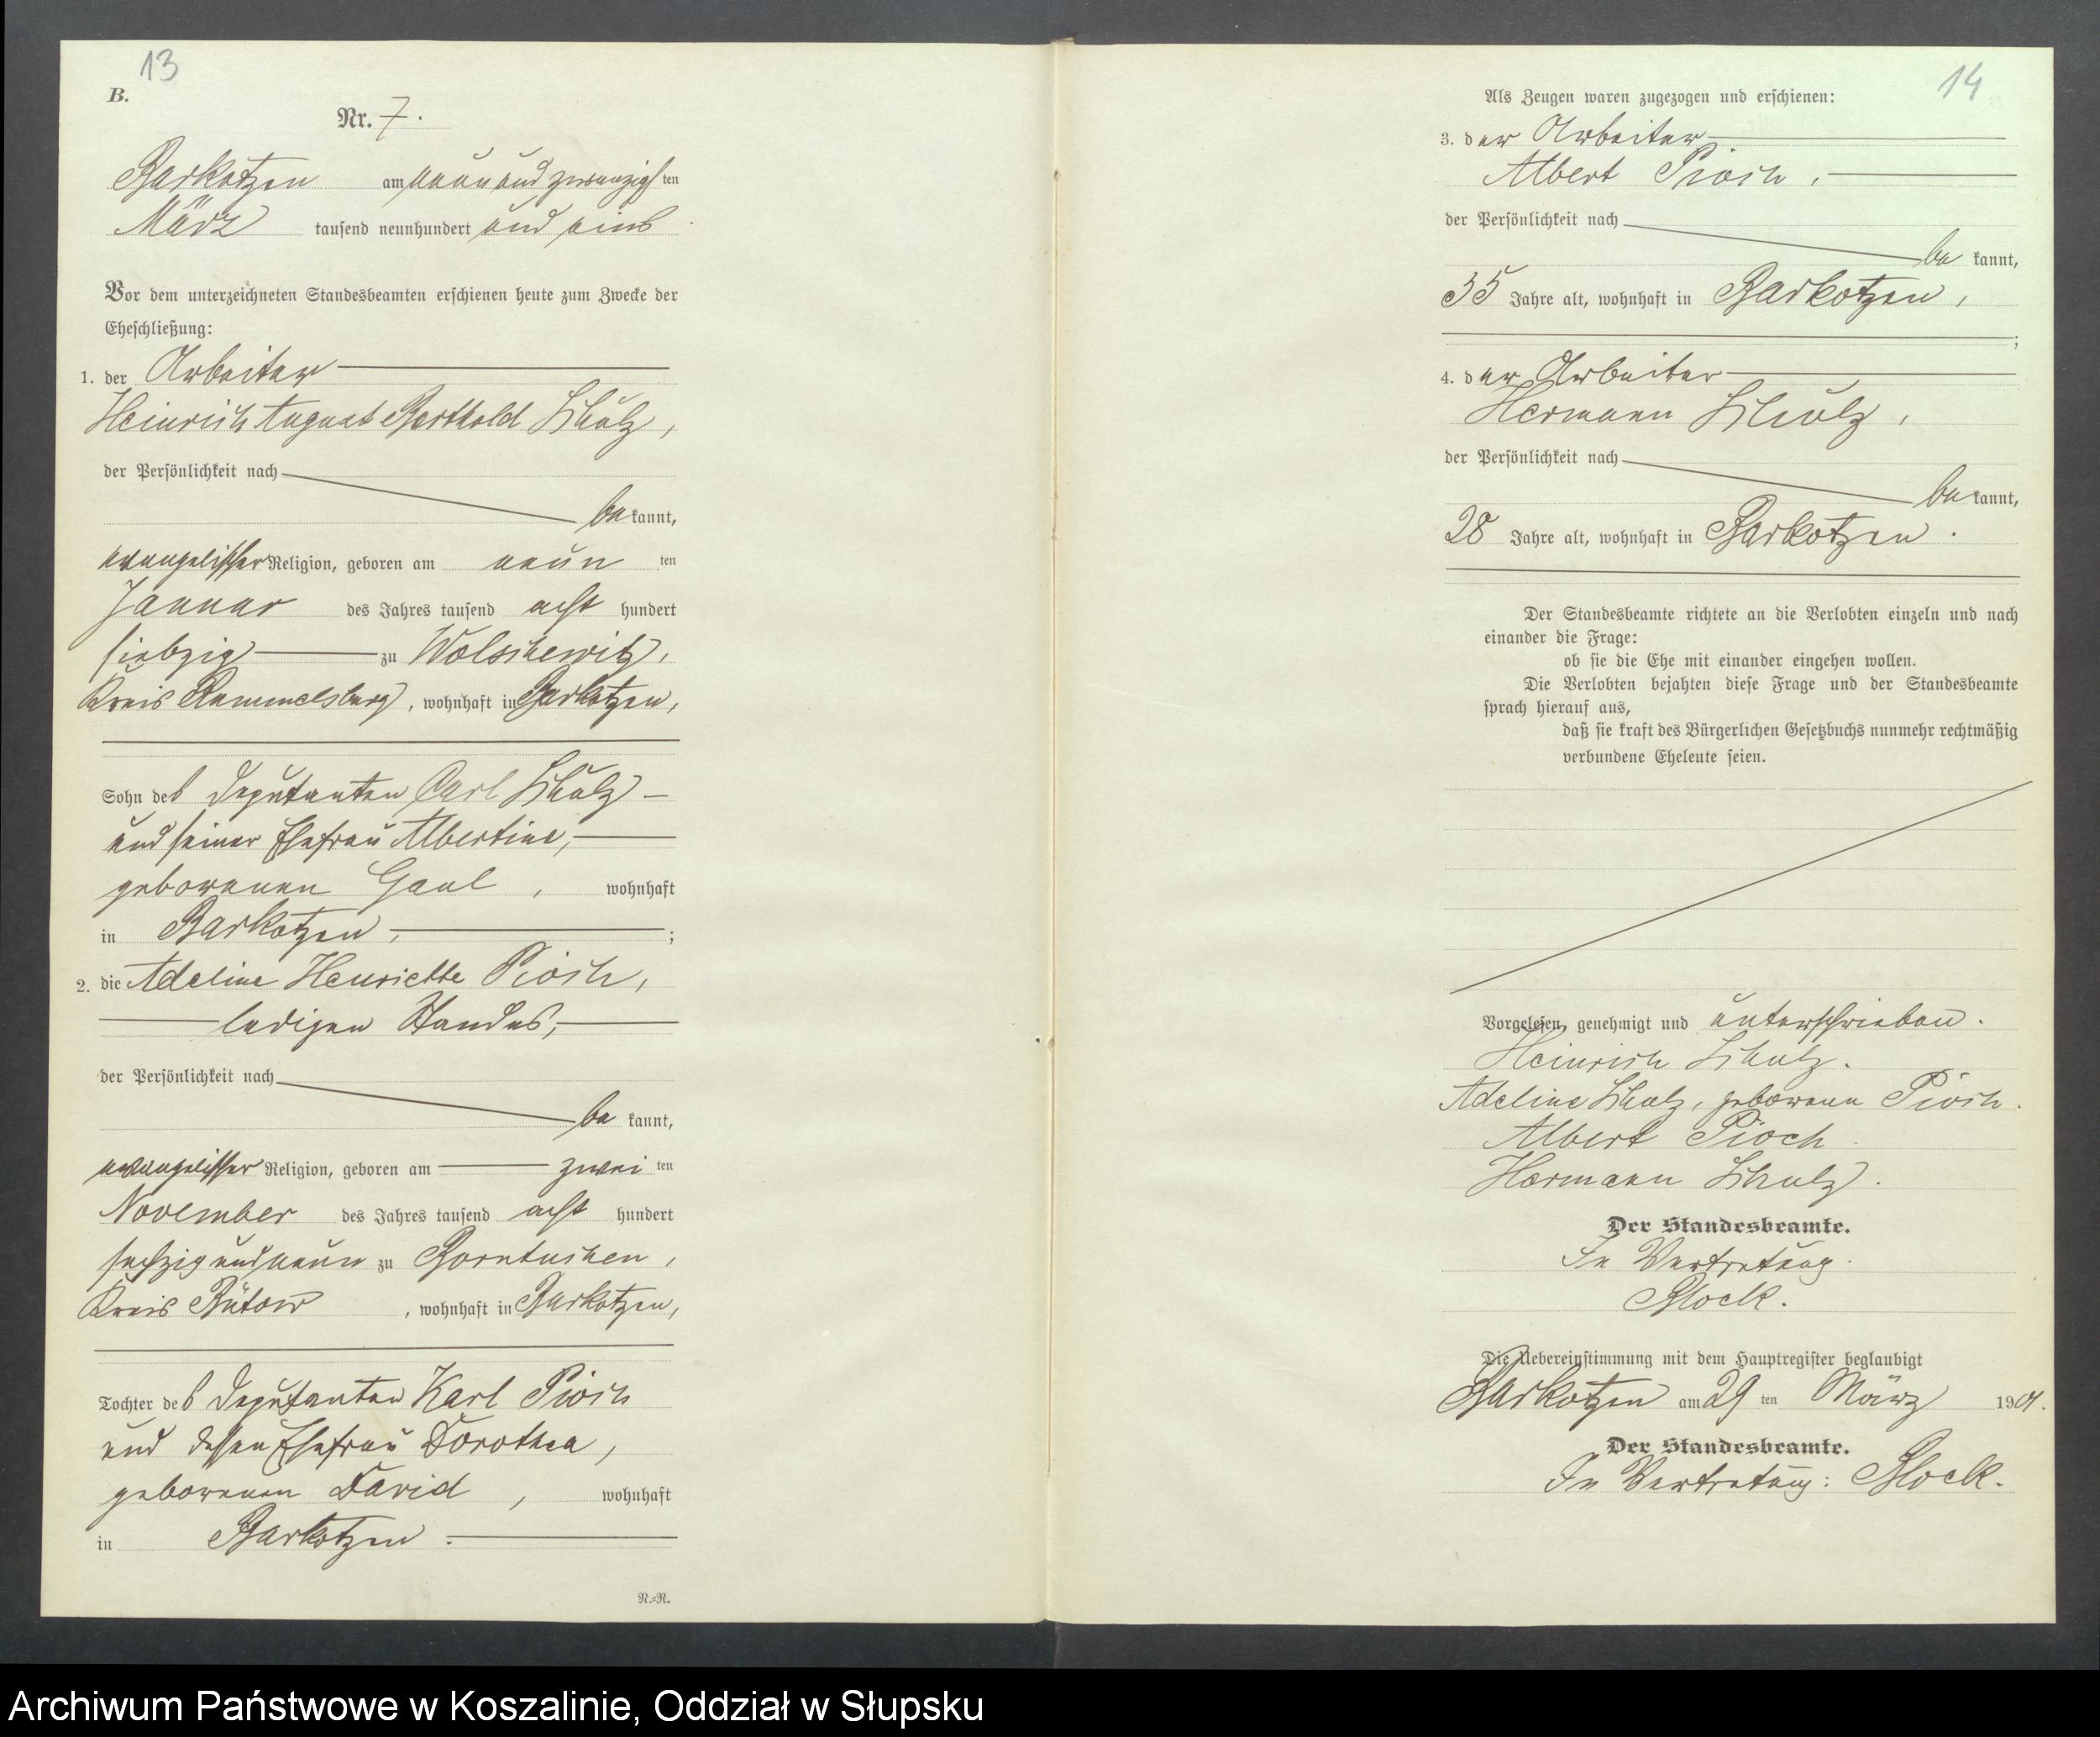 13
B.
Nr. 7.
Barkotzen am neun und zwanzigsten
März tausend neunhundert und eins
Vor dem unterzeichneten Standesbeamten erschienen heute zum Zwecke der
Eheschließung:
1. der Arbeiter
Heinrich August Berthold Schulz,
der Persönlichkeit nach
bekannt,
evangelischer Religion, geboren am neun ten
Januar des Jahres tausend acht hundert
siebzig zu Wolschewitz,
Kreis Rummelsburg, wohnhaft in Barkotzen,
Sohn des Deputanten Carl Schulz
und seiner Ehefrau Albertine,
geborenen Gaul, wohnhaft
in Barkotzen, ;
2. die Adeline Henriette Pioch,
ledigen Standes,
der Persönlichkeit nach
bekannt,
evangelischer Religion, geboren am zwei ten
November des Jahres tausend acht hundert
sechzig und neun zu Borntuchen,
Kreis Bütow, wohnhaft in Barkotzen,
Tochter des Deputanten Karl Pioch
und dessen Ehefrau Dorothea,
geborenen David, wohnhaft
in Barkotzen.
N.=R.
14
Als Zeugen waren zugezogen und erschienen:
3. der Arbeiter
Albert Pioch,
der Persönlichkeit nach
bekannt,
35 Jahre alt, wohnhaft in Barkotzen,
;
4. der Arbeiter
Hermann Schulz,
der Persönlichkeit nach
bekannt,
28 Jahre alt, wohnhaft in Barkotzen.
Der Standesbeamte richtete an die Verlobten einzeln und nach
einander die Frage:
ob sie die Ehe mit einander eingehen wollen.
Die Verlobten bejahten diese Frage und der Standesbeamte
sprach hierauf aus,
daß sie kraft des Bürgerlichen Gesetzbuchs nunmehr rechtmäßig
verbundene Eheleute seien.
Vorgelesen, genehmigt und unterschrieben.
Heinrich Schulz.
Adeline Schulz, geborene Pioch.
Albert Pioch
Hermann Schulz.
Der Standesbeamte.
In Vertretung.
Block.
Die Uebereinstimmung mit dem Hauptregister beglaubigt
Barkotzen am 29 ten März 1901.
Der Standesbeamte.
In Vertretung: Block.
Archiwum Państwowe w Koszalinie, Oddział w Słupsku